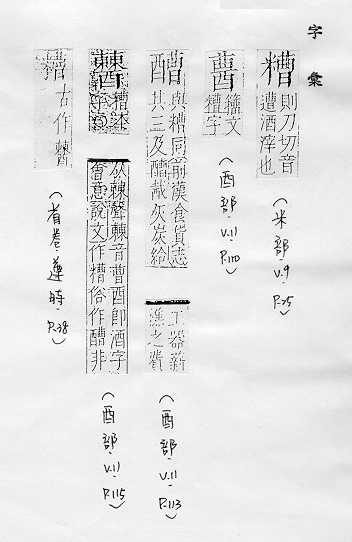 字彙
糟
則刀切音
遭酒滓也
(米部.V.9.P.75)
籒文
糟字
(酉部.V.11.P.110)
醩
與糟同前漢食貨志
其三及醩酨灰炭給
工器薪
樵之費
(酉部.V.11.P.113)
糟本
字○
从棘聲棘音曹酉即酒字
會意說文作糟俗作醩非
(酉部.V.11.P.115)
古作
(首卷.遵時.P.38)